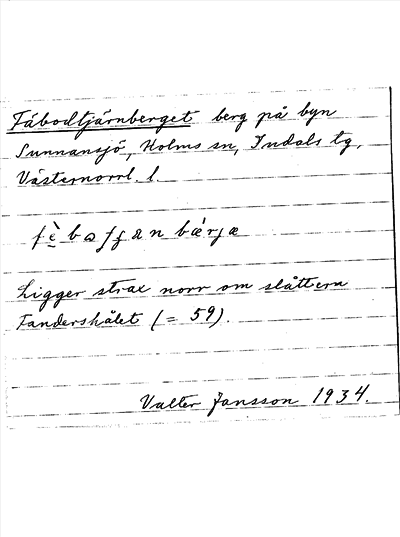 Fäbodtjärnberget berg på byn
Sunnansjö, Holms sn, Indals tg,
Västernorrl. l.
Ligger strax norr om slåttern
Fandershålet (= 59).
Valter Jansson 1934.